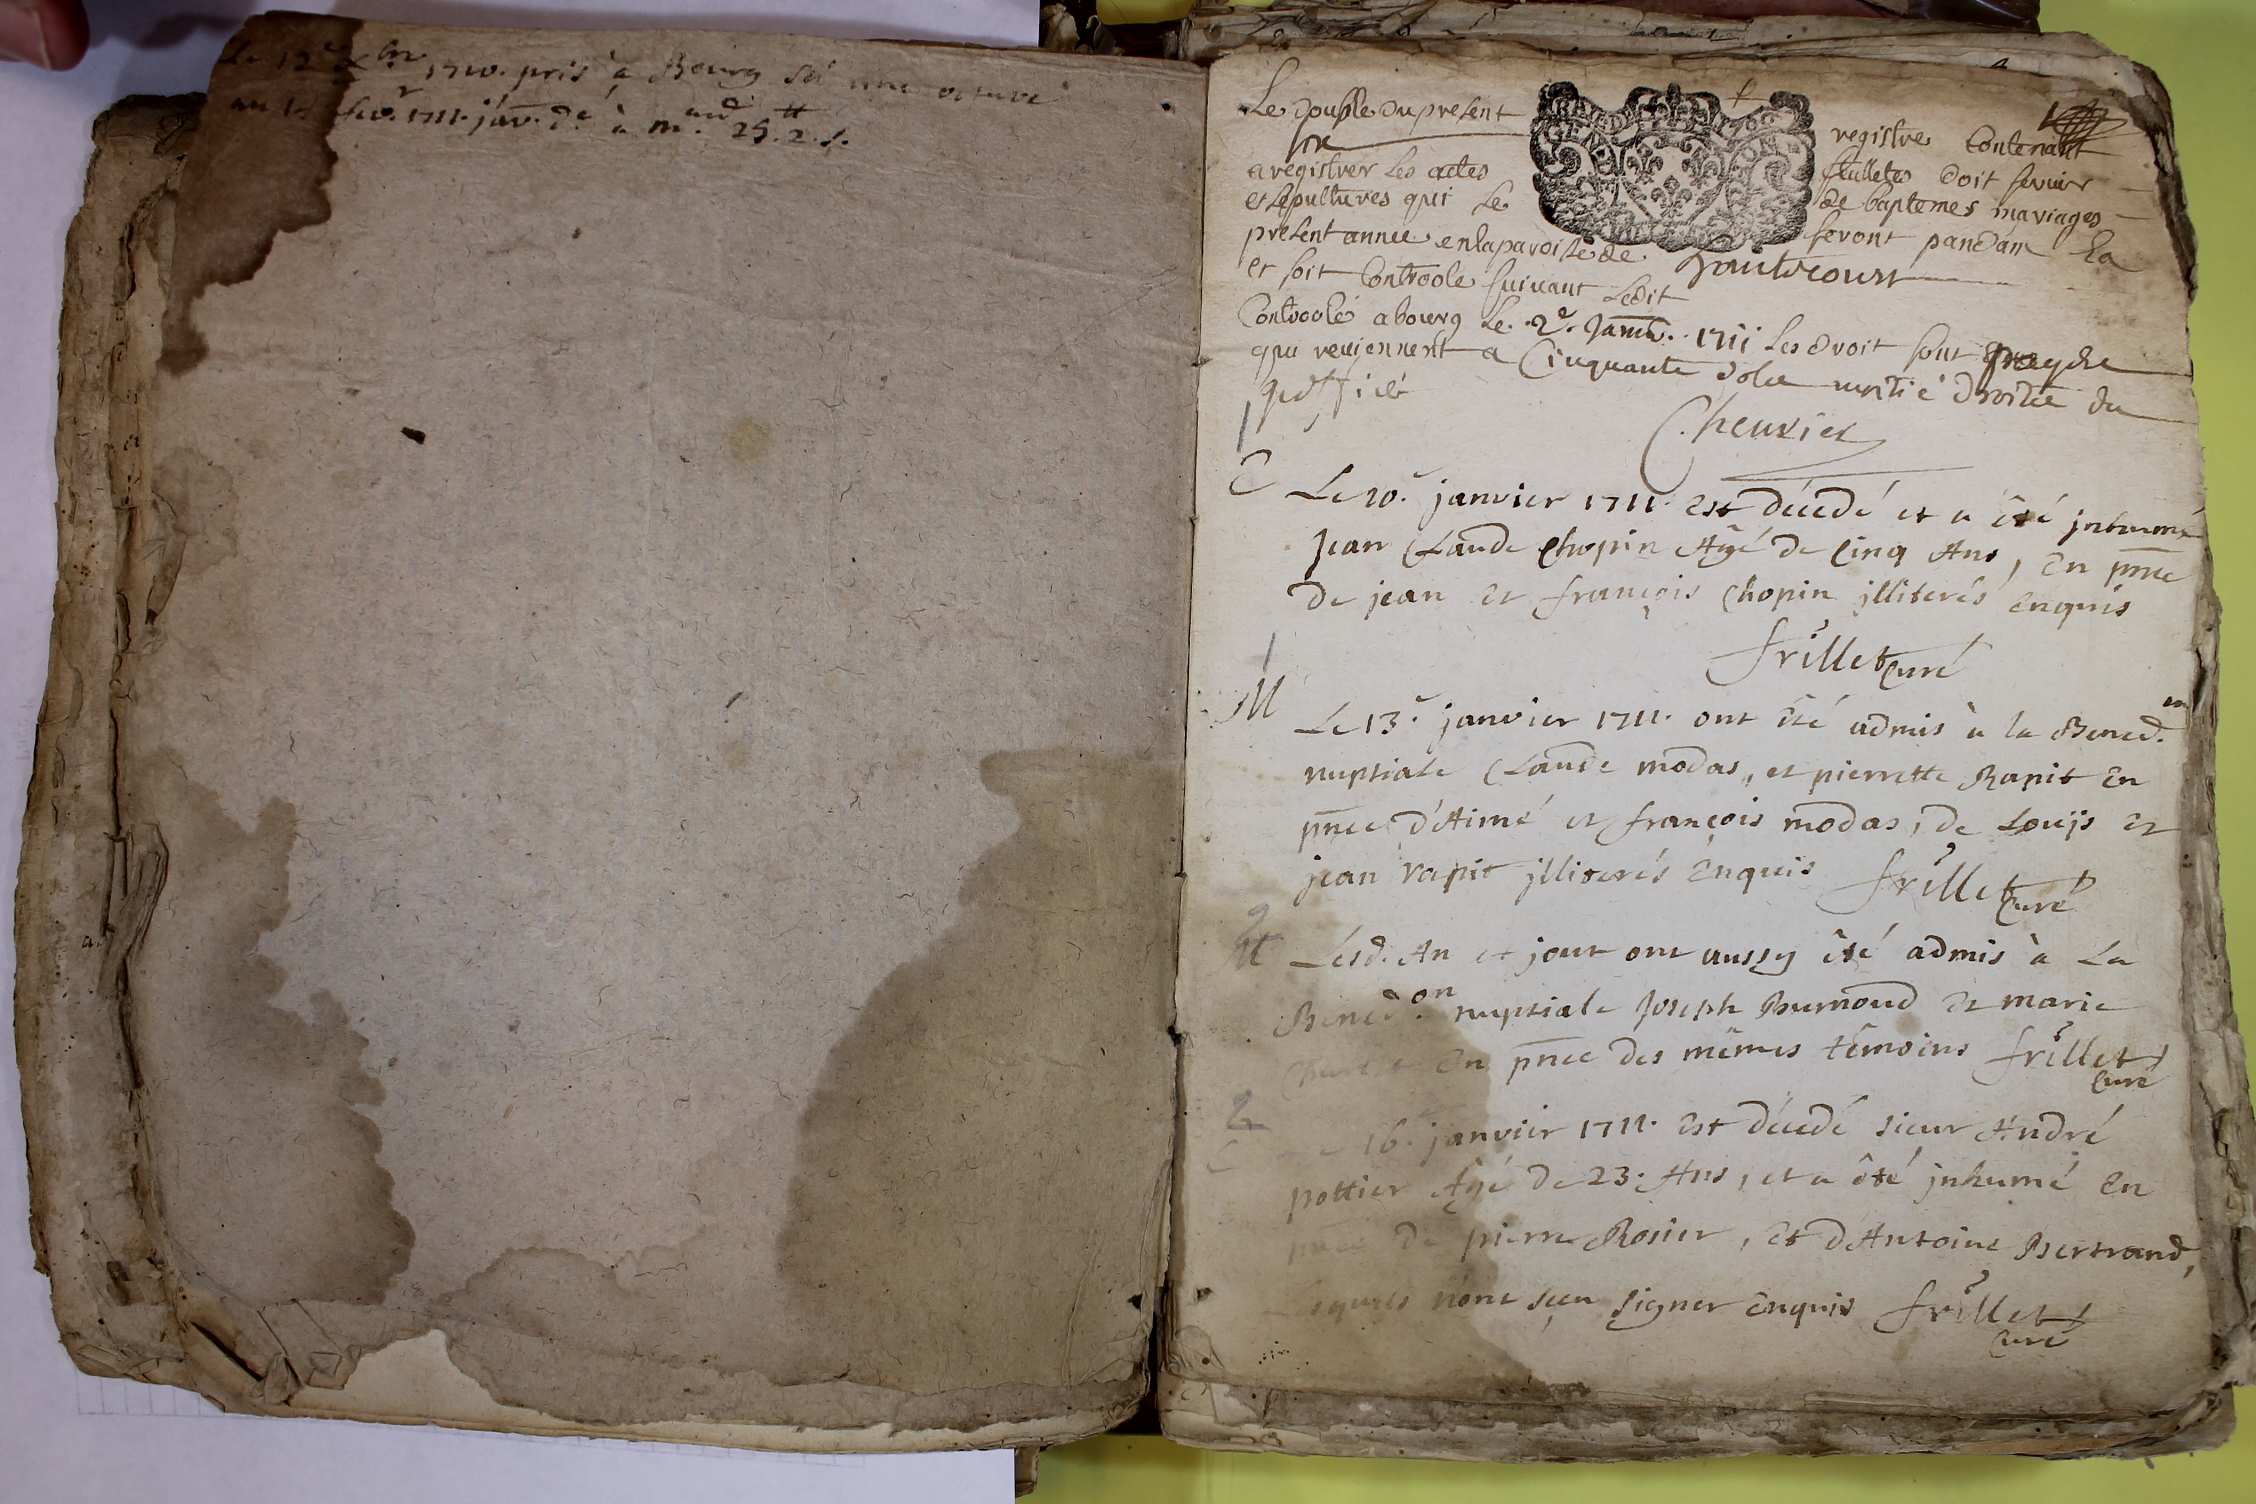 Le 12e Xbre 1710. pris à Bourg
1711. janv. 25. 2. s.
Le double du present registre Contenant
six feulletes doit servir
a registrer les actes de baptemes mariages
et sepultures qui se feront pandant la
present annee en la paroisse de hautecourt
et soit Controole suivant Ledit
Controolé a bourg Le 2e. Janvr. 1711 Les droit sont
qui reviennent a Cinquante solz moitié
Cheurier
C
Le 10e. janvier 1711. Est décedé et a été jnhumé
Jean Claude Chopin Agé de Cinq Ans, En pnce
De jean et françois Chopin jlliterés Enquis
frillet Curé
1
M
Le 13e. janvier 1711. ont été admis à la Bened.on
nuptiale Claude modas, et pierrette Rapit En
pnce d'Aimé et françois modas, de Louïs Et
jean rapit jlliterés Enquis frillet Curé
2
M
Lesd. An et jour ont aussy été admis à La
Bened.on nuptiale Joseph et marie
En pnce des mêmes têmoins frillet
Curé
2
C
16e. janvier 1711. Est décedé sieur André
pottier Agé de 23. Ans, et a été jnhumé En
pnce de pierre Rosier, et d'Antoine Bertrand,
Lequels n'ont sçeu signer Enquis frillet
Curé